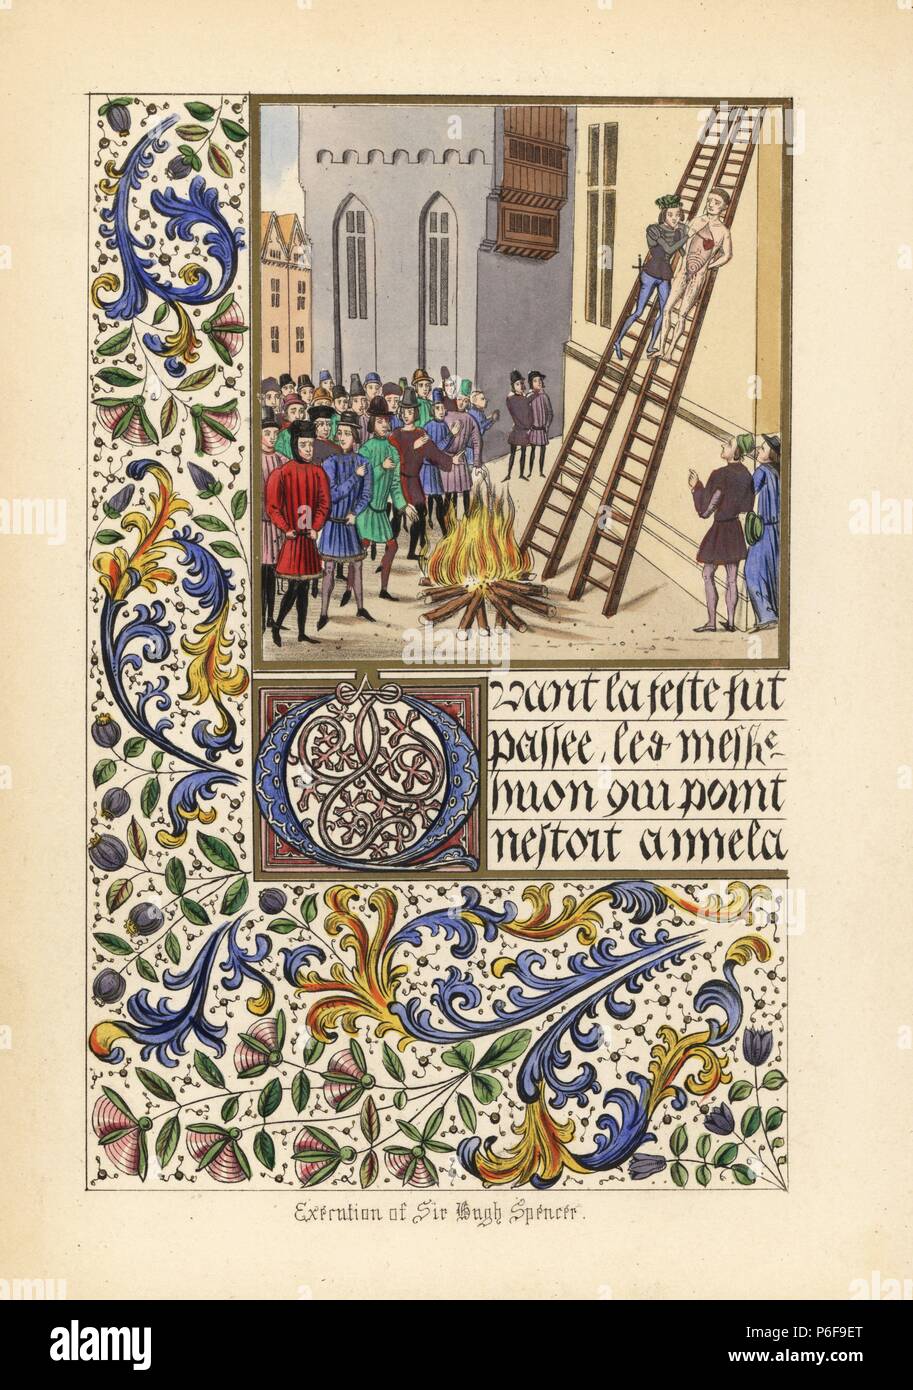 Quant la feste fut
passee, les mess
huon qui point
nestoit annela
Execution of Sir Hugh Spencer.
alamy
Image ID: P6F9ET
www.alamy.com